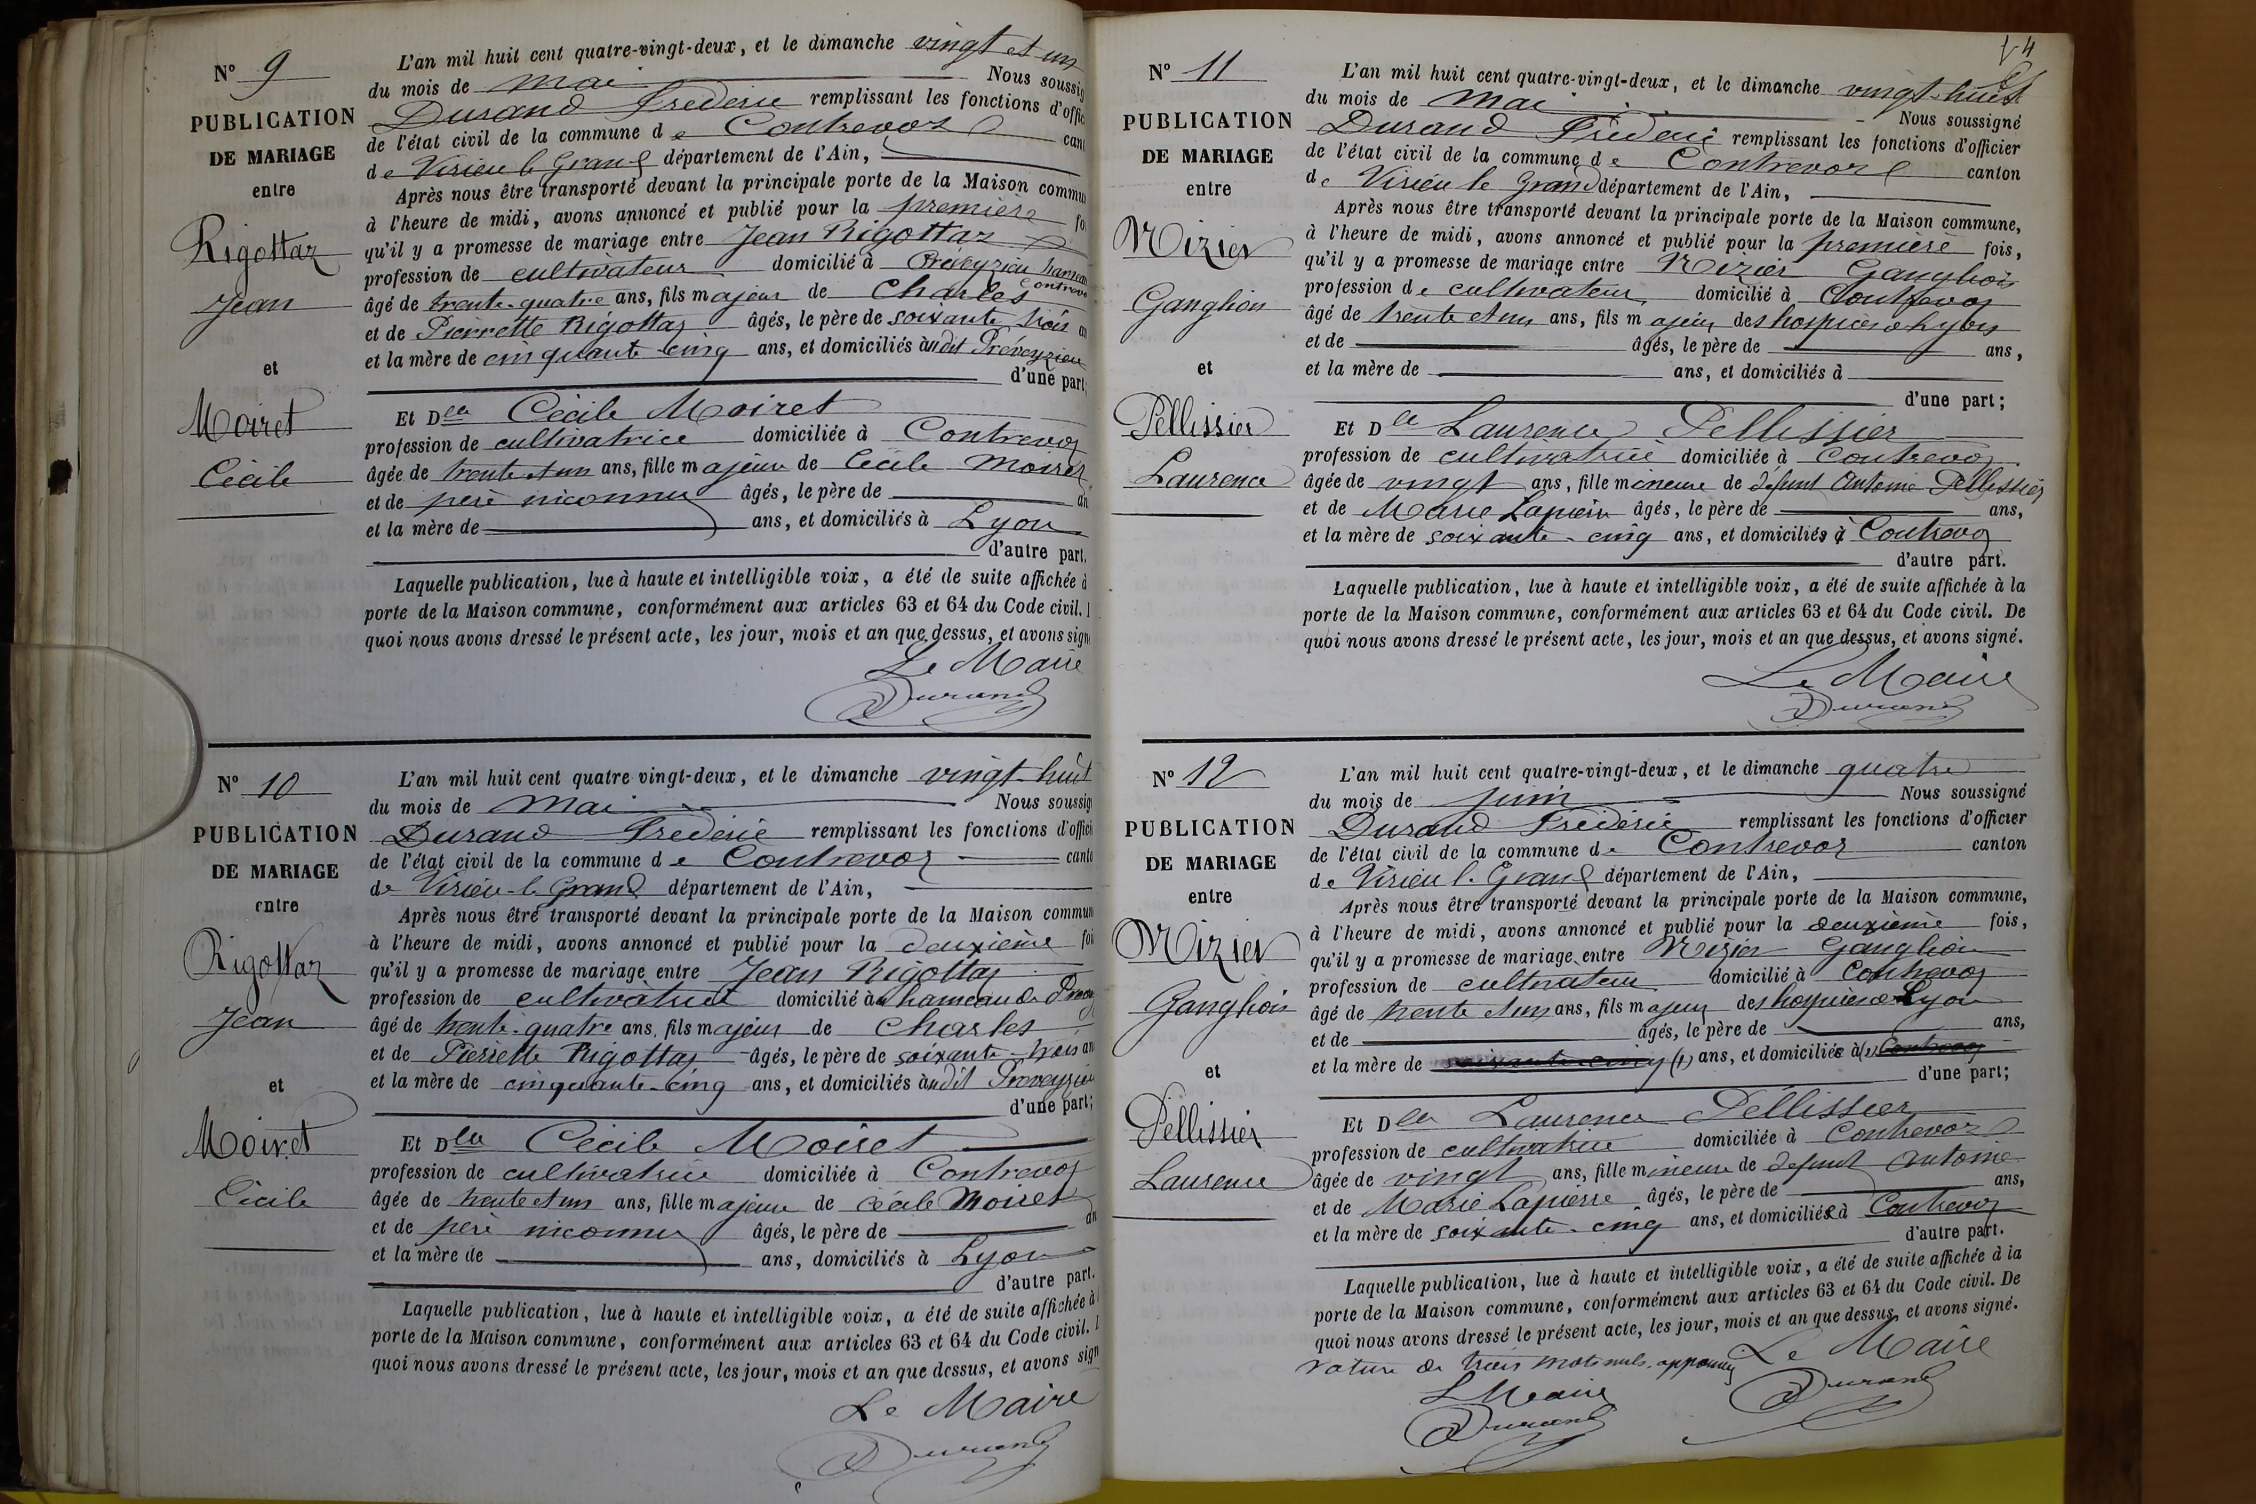 N° 9
PUBLICATION
DE MARIAGE
entre
Rigottaz
Jean
et
Moiret
Cécile
L'an mil huit cent quatre-vingt-deux, et le dimanche vingt et un
du mois de mai Nous soussig
Durand Frédéric remplissant les fonctions d'offic
de l'état civil de la commune de Contrevoz cant
de Virieu le Grand département de l'Ain,
Après nous être transporté devant la principale porte de la Maison commun
à l'heure de midi, avons annoncé et publié pour la première fo
qu'il y a promesse de mariage entre Jean Rigottaz
profession de cultivateur domicilié à Préveyzieu hameau
Contrevo
âgé de trente-quatre ans, fils majeur de Charles
et de Pierrette Rigottaz âgés, le père de soixante trois an
et la mère de cinquante cinq ans, et domiciliés audit Préveyzieu
d'une part;
Et Dlle Cécile Moiret
profession de cultivatrice domiciliée à Contrevoz
âgée de trente et un ans, fille majeure de Cécile Moiret
et de père inconnu âgés, le père de an
et la mère de ans, et domiciliés à Lyon
d'autre part.
Laquelle publication, lue à haute et intelligible voix, a été de suite affichée à
porte de la Maison commune, conformément aux articles 63 et 64 du Code civil.
quoi nous avons dressé le présent acte, les jour, mois et an que dessus, et avons sign
Le Maire
Durand
N° 10
PUBLICATION
DE MARIAGE
entre
Rigottaz
Jean
et
Moiret
Cécile
L'an mil huit cent quatre vingt-deux, et le dimanche vingt-huit
du mois de mai Nous soussig
Durand Frédéric remplissant les fonctions d'offici
de l'état civil de la commune de Contrevoz canto
de Virieu-le Grand département de l'Ain,
Après nous être transporté devant la principale porte de la Maison commun
à l'heure de midi, avons annoncé et publié pour la deuxième foi
qu'il y a promesse de mariage entre Jean Rigottaz
profession de cultivatrice domicilié au hameau de
âgé de trente-quatre ans, fils majeur de Charles
et de Pierrette Rigottaz âgés, le père de soixante-trois an
et la mère de cinquante-cinq ans, et domiciliés audit Preveyzieu
d'une part;
Et Dlle Cécile Moiret
profession de cultivatrice domiciliée à Contrevoz
âgée de trente et un ans, fille majeure de Cécile Moiret
et de père inconnu âgés, le père de an
et la mère de ans, domiciliés à Lyon
d'autre part.
Laquelle publication, lue à haute et intelligible voix, a été de suite affichée à
porte de la Maison commune, conformément aux articles 63 et 64 du Code civil.
quoi nous avons dressé le présent acte, les jour, mois et an que dessus, et avons sign
Le Maire
Durand
N° 11
PUBLICATION
DE MARIAGE
entre
Nizier
Ganglion
et
Pellissier
Laurence
L'an mil huit cent quatre-vingt-deux, et le dimanche vingt-huit
du mois de mai Nous soussigné
Durand Frédéric remplissant les fonctions d'officier
de l'état civil de la commune de Contrevoz canton
de Virieu le Grand département de l'Ain,
Après nous être transporté devant la principale porte de la Maison commune,
à l'heure de midi, avons annoncé et publié pour la première fois,
qu'il y a promesse de mariage entre Nizier Ganglion
profession de cultivateur domicilié à Contrevoz
âgé de trente et un ans, fils majeur des hospices de Lyon
et de âgés, le père de ans,
et la mère de ans, et domiciliés à
d'une part;
Et Dlle Laurence Pellissier
profession de cultivatrice domiciliée à Contrevoz
âgée de vingt ans, fille mineure de défunt Antoine Pellissier
et de Marie Lapierre âgés, le père de ans,
et la mère de soixante-cinq ans, et domiciliés à Contrevoz
d'autre part.
Laquelle publication, lue à haute et intelligible voix, a été de suite affichée à la
porte de la Maison commune, conformément aux articles 63 et 64 du Code civil. De
quoi nous avons dressé le présent acte, les jour, mois et an que dessus, et avons signé.
Le Maire
Durand
N° 12
PUBLICATION
DE MARIAGE
entre
Nizier
Ganglion
et
Pellissier
Laurence
L'an mil huit cent quatre-vingt-deux, et le dimanche quatre
du mois de juin Nous soussigné
Durand Frédéric remplissant les fonctions d'officier
de l'état civil de la commune de Contrevoz canton
de Virieu le Grand département de l'Ain,
Après nous être transporté devant la principale porte de la Maison commune,
à l'heure de midi, avons annoncé et publié pour la deuxième fois,
qu'il y a promesse de mariage entre Nizier Ganglion
profession de cultivateur domicilié à Contrevoz
âgé de trente et un ans, fils majeur des hospices de Lyon
et de âgés, le père de ans,
et la mère de soixante-cinq (1) ans, et domiciliés à (1) Contrevoz
d'une part;
Et Dlle Laurence Pellissier
profession de cultivatrice domiciliée à Contrevoz
âgée de vingt ans, fille mineure de défunt Antoine
et de Marie Lapierre âgés, le père de ans,
et la mère de soixante-cinq ans, et domiciliés à Contrevoz
d'autre part.
Laquelle publication, lue à haute et intelligible voix, a été de suite affichée à la
porte de la Maison commune, conformément aux articles 63 et 64 du Code civil. De
quoi nous avons dressé le présent acte, les jour, mois et an que dessus, et avons signé.
rature de trois mots nuls. approuvé
Le Maire
Durand
Le Maire
Durand